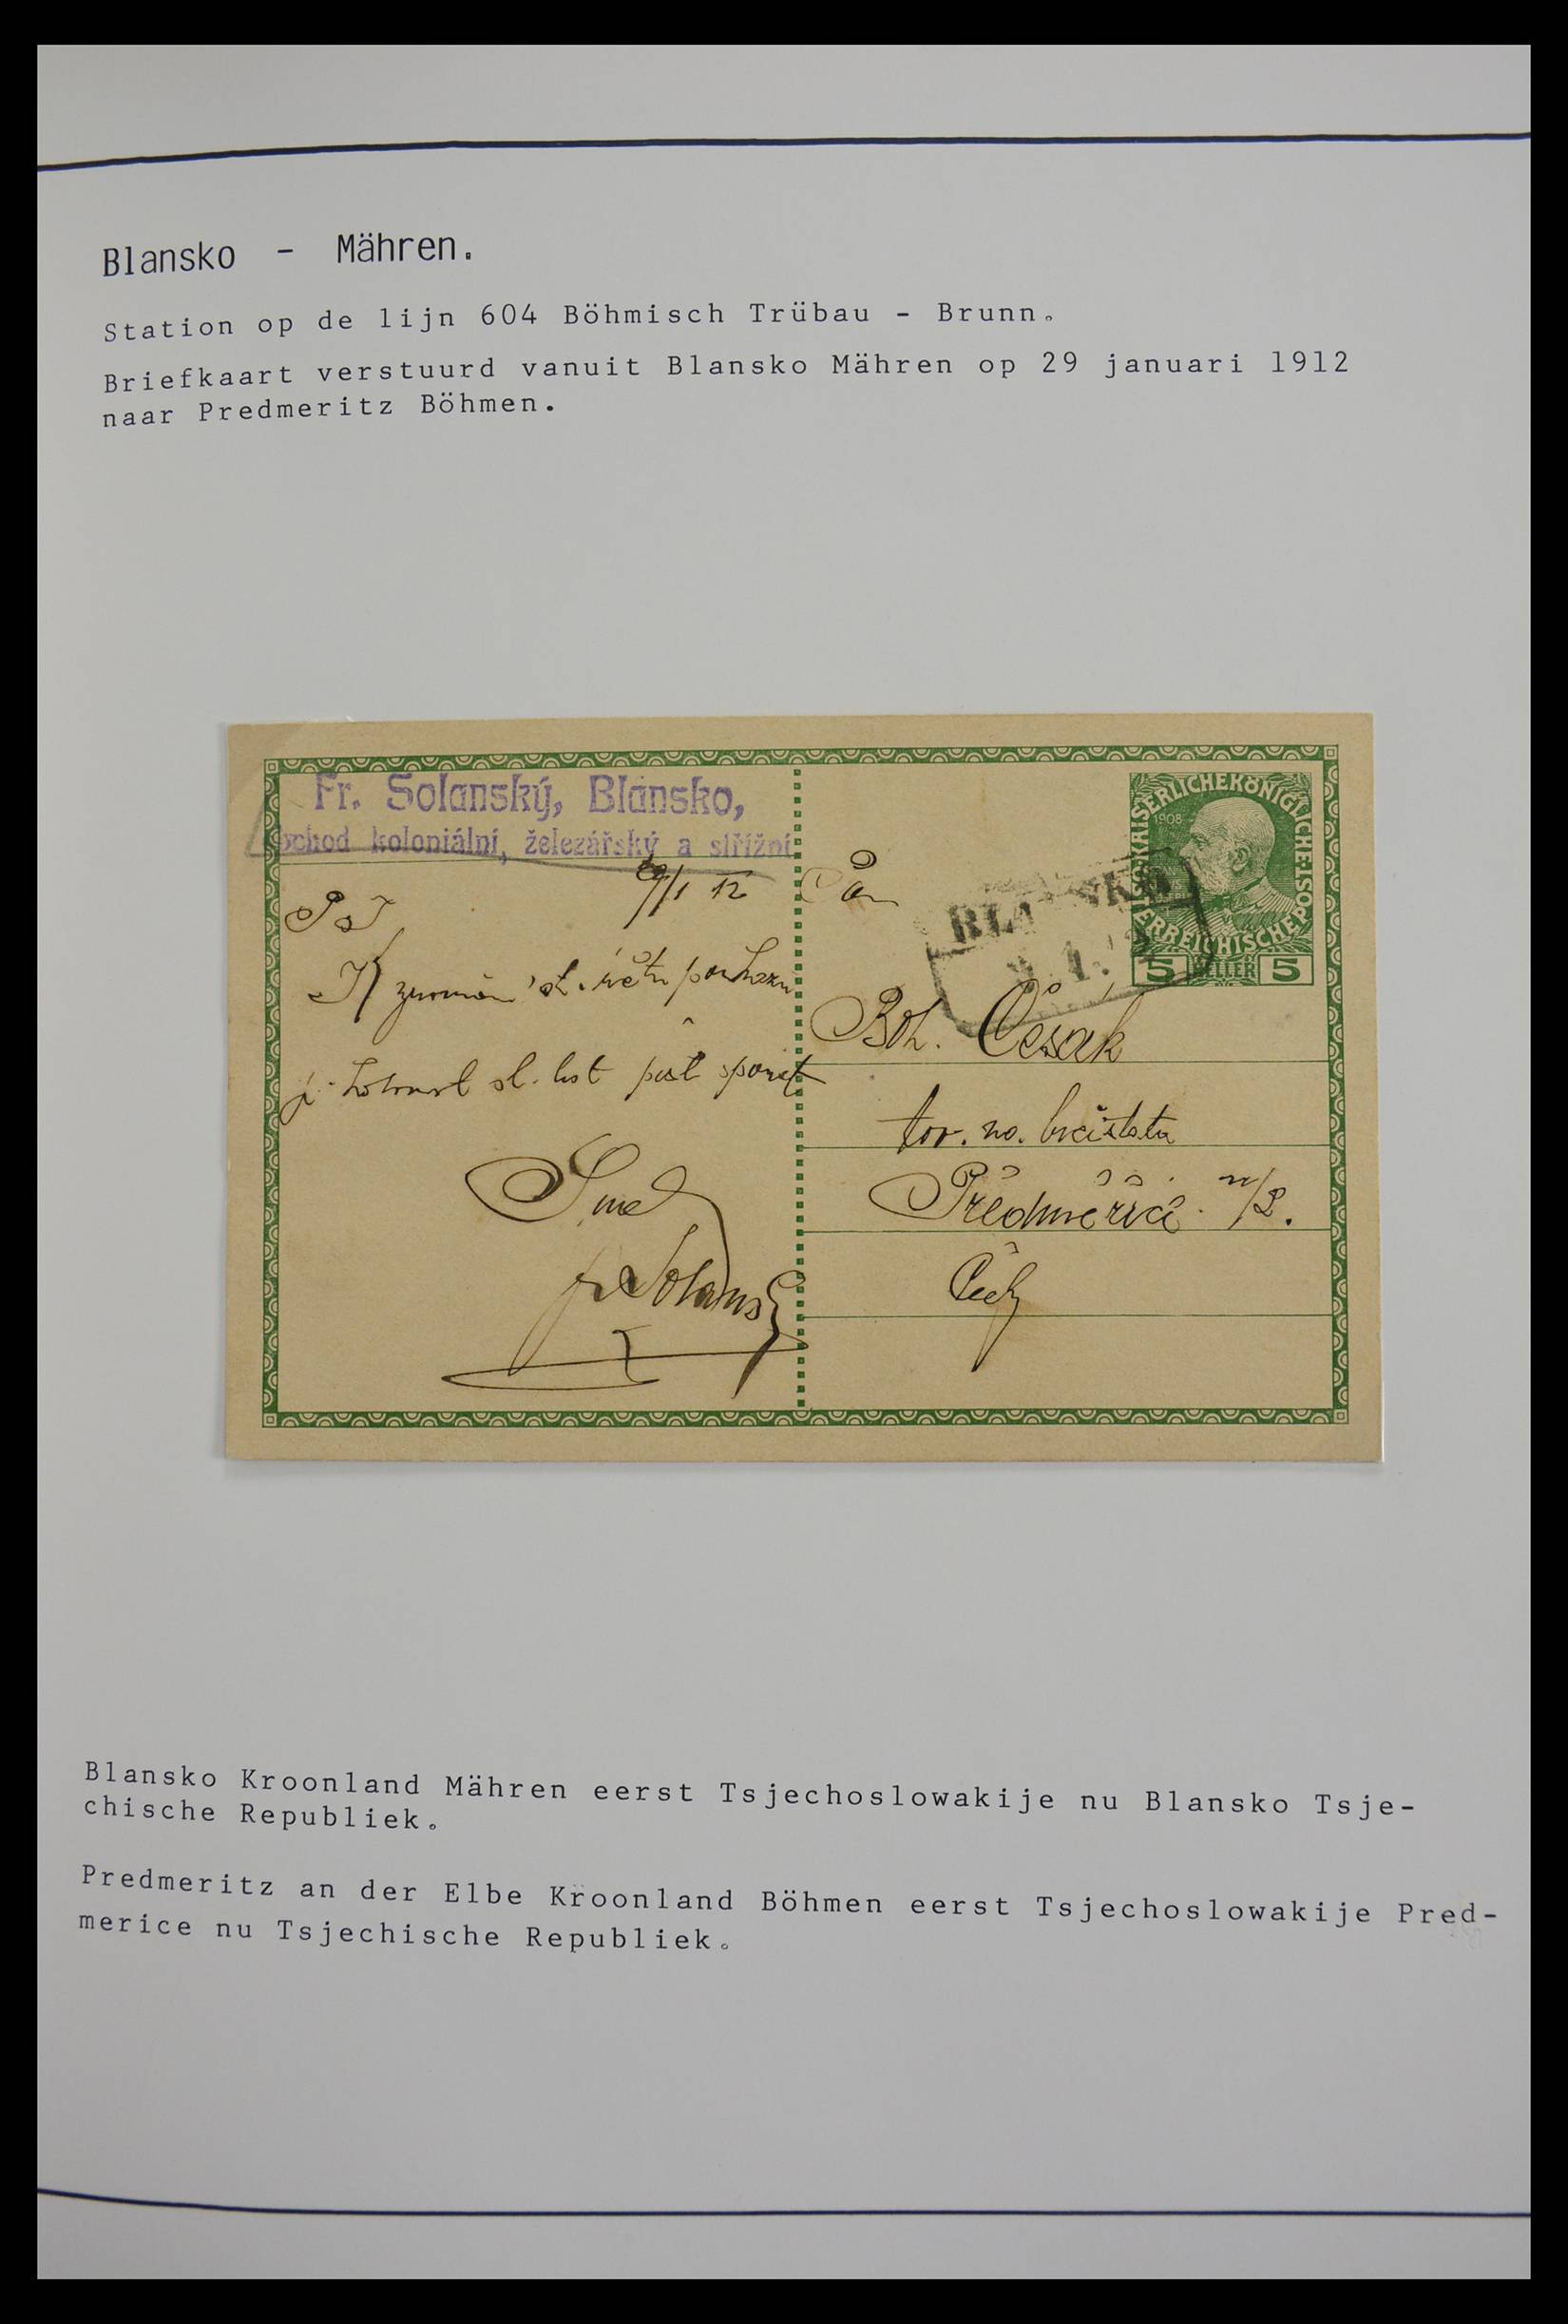 Blansko - Mähren.
Station op de lijn 604 Böhmisch Trübau - Brunn.
Briefkaart verstuurd vanuit Blansko Mähren op 29 januari 1912
naar Predmeritz Böhmen.
Fr. Solanský, Blansko,
obchod koloniální, železářský a střižní
29/1 12
P. T.
sl.
sl. list
Fr Solanský
KAISERLICHEKÖNIGLICHE
ÖSTERREICHISCHEPOST
1908
5 HELLER 5
BLANSKO
Pan
Boh. Česák
tov. na
Předměřice n/L.
Čechy
Blansko Kroonland Mähren eerst Tsjechoslowakije nu Blansko Tsje-
chische Republiek.
Predmeritz an der Elbe Kroonland Böhmen eerst Tsjechoslowakije Pred-
merice nu Tsjechische Republiek.